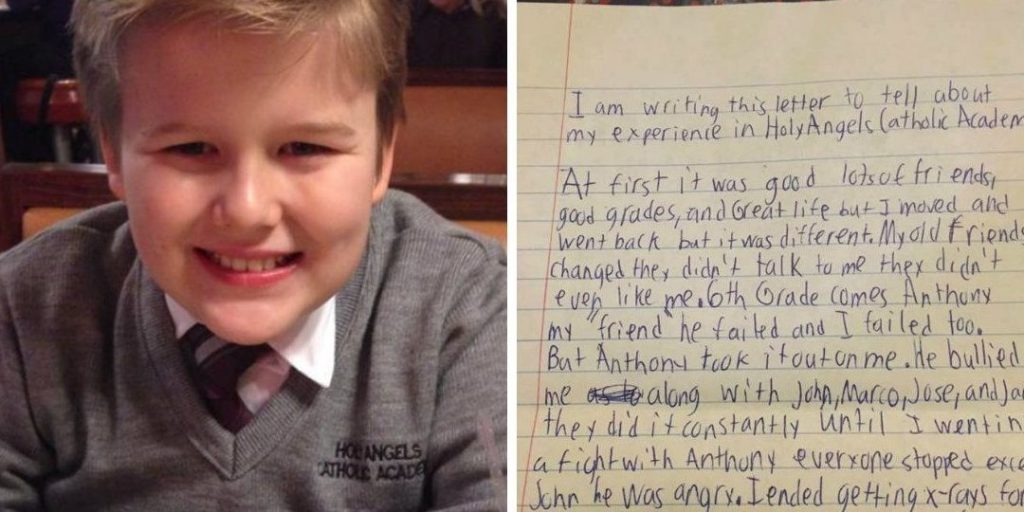 HOLY ANGELS
CATHOLIC ACADE
I am writing this letter to tell about
my experience in Holy Angels Catholic Academ
At first it was good lots of friends,
good grades, and Great life but I moved and
went back but it was different. My old friends
changed they didn't talk to me they didn't
even like me. 6th Grade comes Anthony
my "friend" he failed and I failed too.
But Anthony took it out on me. He bullied
me along with John, Marco, Jose, and Ja
they did it constantly until I went in
a fight with Anthony everyone stopped exc
John he was angry. I ended getting x-rays for